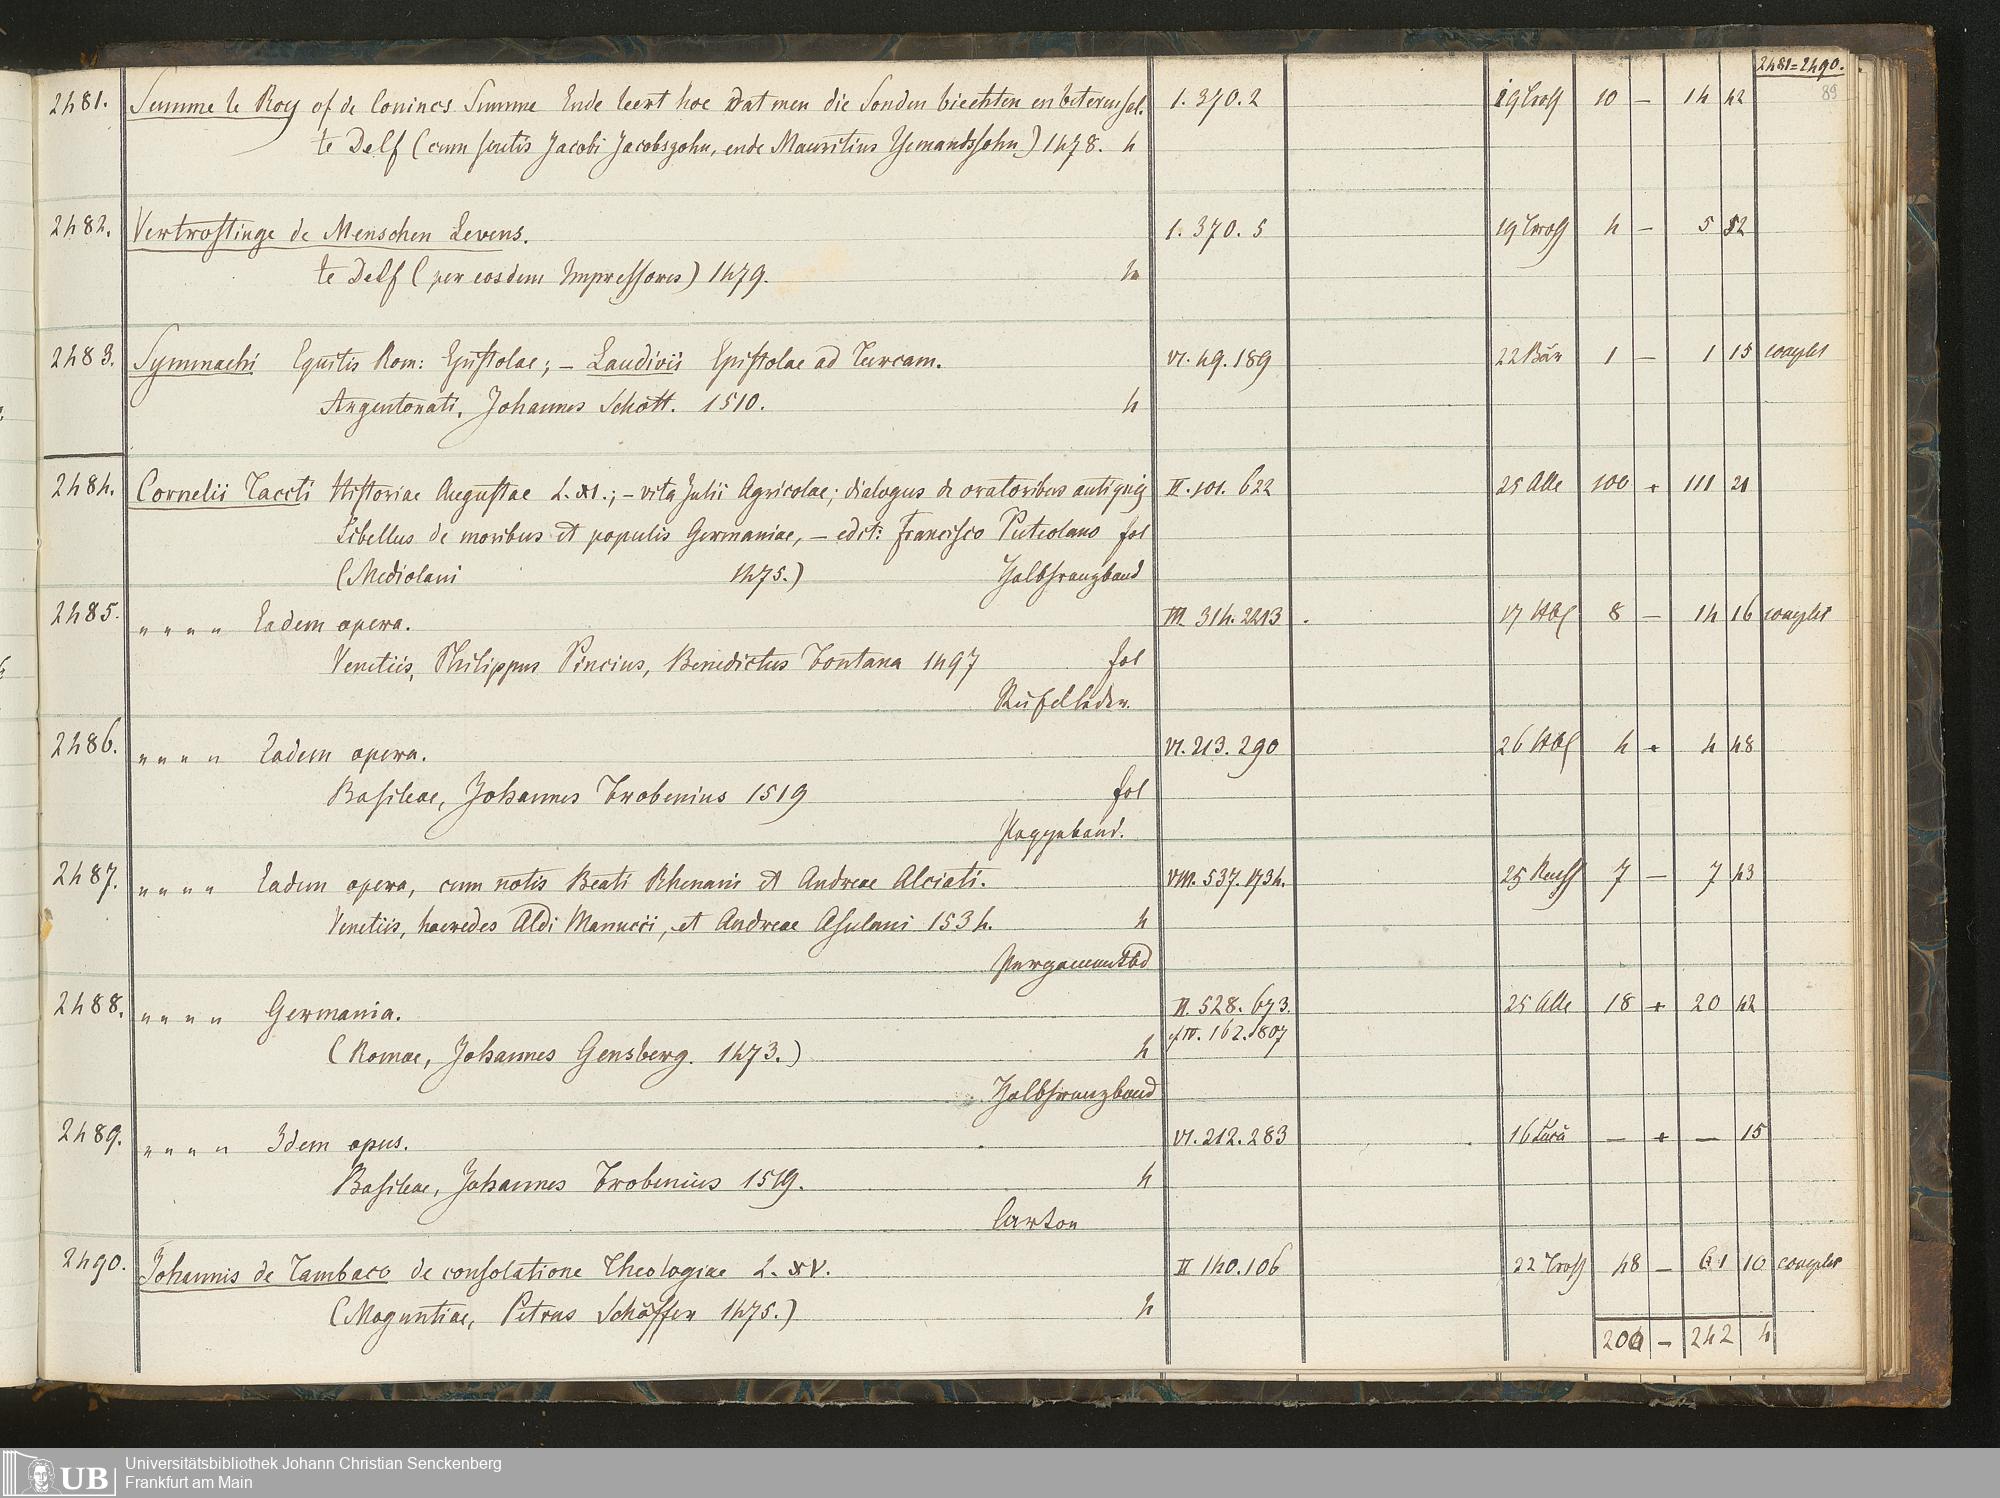 2481=2490.
89
2481. Summe le Roy of de Conincs Summe Ende leert hoe dat men die Sonden biechten en beteren sel. 1. 370. 2 10 — 14 42
te Delf (cum scutis Jacobi Jacobszohn, ende Mauritius Yemandssohn) 1478. 4
2482. Vertrostinge de Menschen Levens. 1. 370. 5 4 — 5 52
te Delf (per eosdem Impressores) 1479. 4
2483. Symmachi Equitis Rom: Epistolae; – Laudivii Epistolae ad Turcam. VI. 49. 189 22 Bär 1 — 1 15 complet
Argentorati, Johannes Schott. 1510. 4
2484. Cornelii Taciti Historiae Augustae L. XI.; – vita Julii Agricolae; dialogus de oratoribus antiquis II. 101. 622 25 Alle 100 + 111 21
Libellus de moribus et populis Germaniae, – edit: Francisco Puteolano fol
(Mediolani 1475.) Halbfranzband
2485. " " " " Eadem opera. III 314. 2213 17 8 — 14 16 complet
Venetiis, Philippus Pincius, Benedictus Fontana 1497 fol
2486. " " " " Eadem opera. VI. 213. 290 26 4 + 4 48
Basileae, Johannes Frobenius 1519 fol
Pappband.
2487. " " " " Eadem opera, cum notis Beati Rhenani et Andreae Alciati. VIII. 537. 1734. 25 7 — 7 43
Venetiis, haeredes Aldi Manucii, et Andreae Asulani 1534. 4
Pergamentbd
2488. " " " " Germania. II. 528. 673. 25 Alle 18 + 20 42
(Romae, Johannes Gensberg. 1473.) 4 cf IV. 162. 1807
Halbfranzband
2489. " " " " Idem opus. VI. 212. 283 — + — 15
Basileae, Johannes Frobenius 1519. 4
Carton
2490. Johannis de Tambaco de consolatione Theologiae L. XV. II 140. 106 48 — 61 10 complet
(Moguntiae, Petrus Schöffer 1475.) 4
200 — 242 4
UB Universitätsbibliothek Johann Christian Senckenberg
Frankfurt am Main